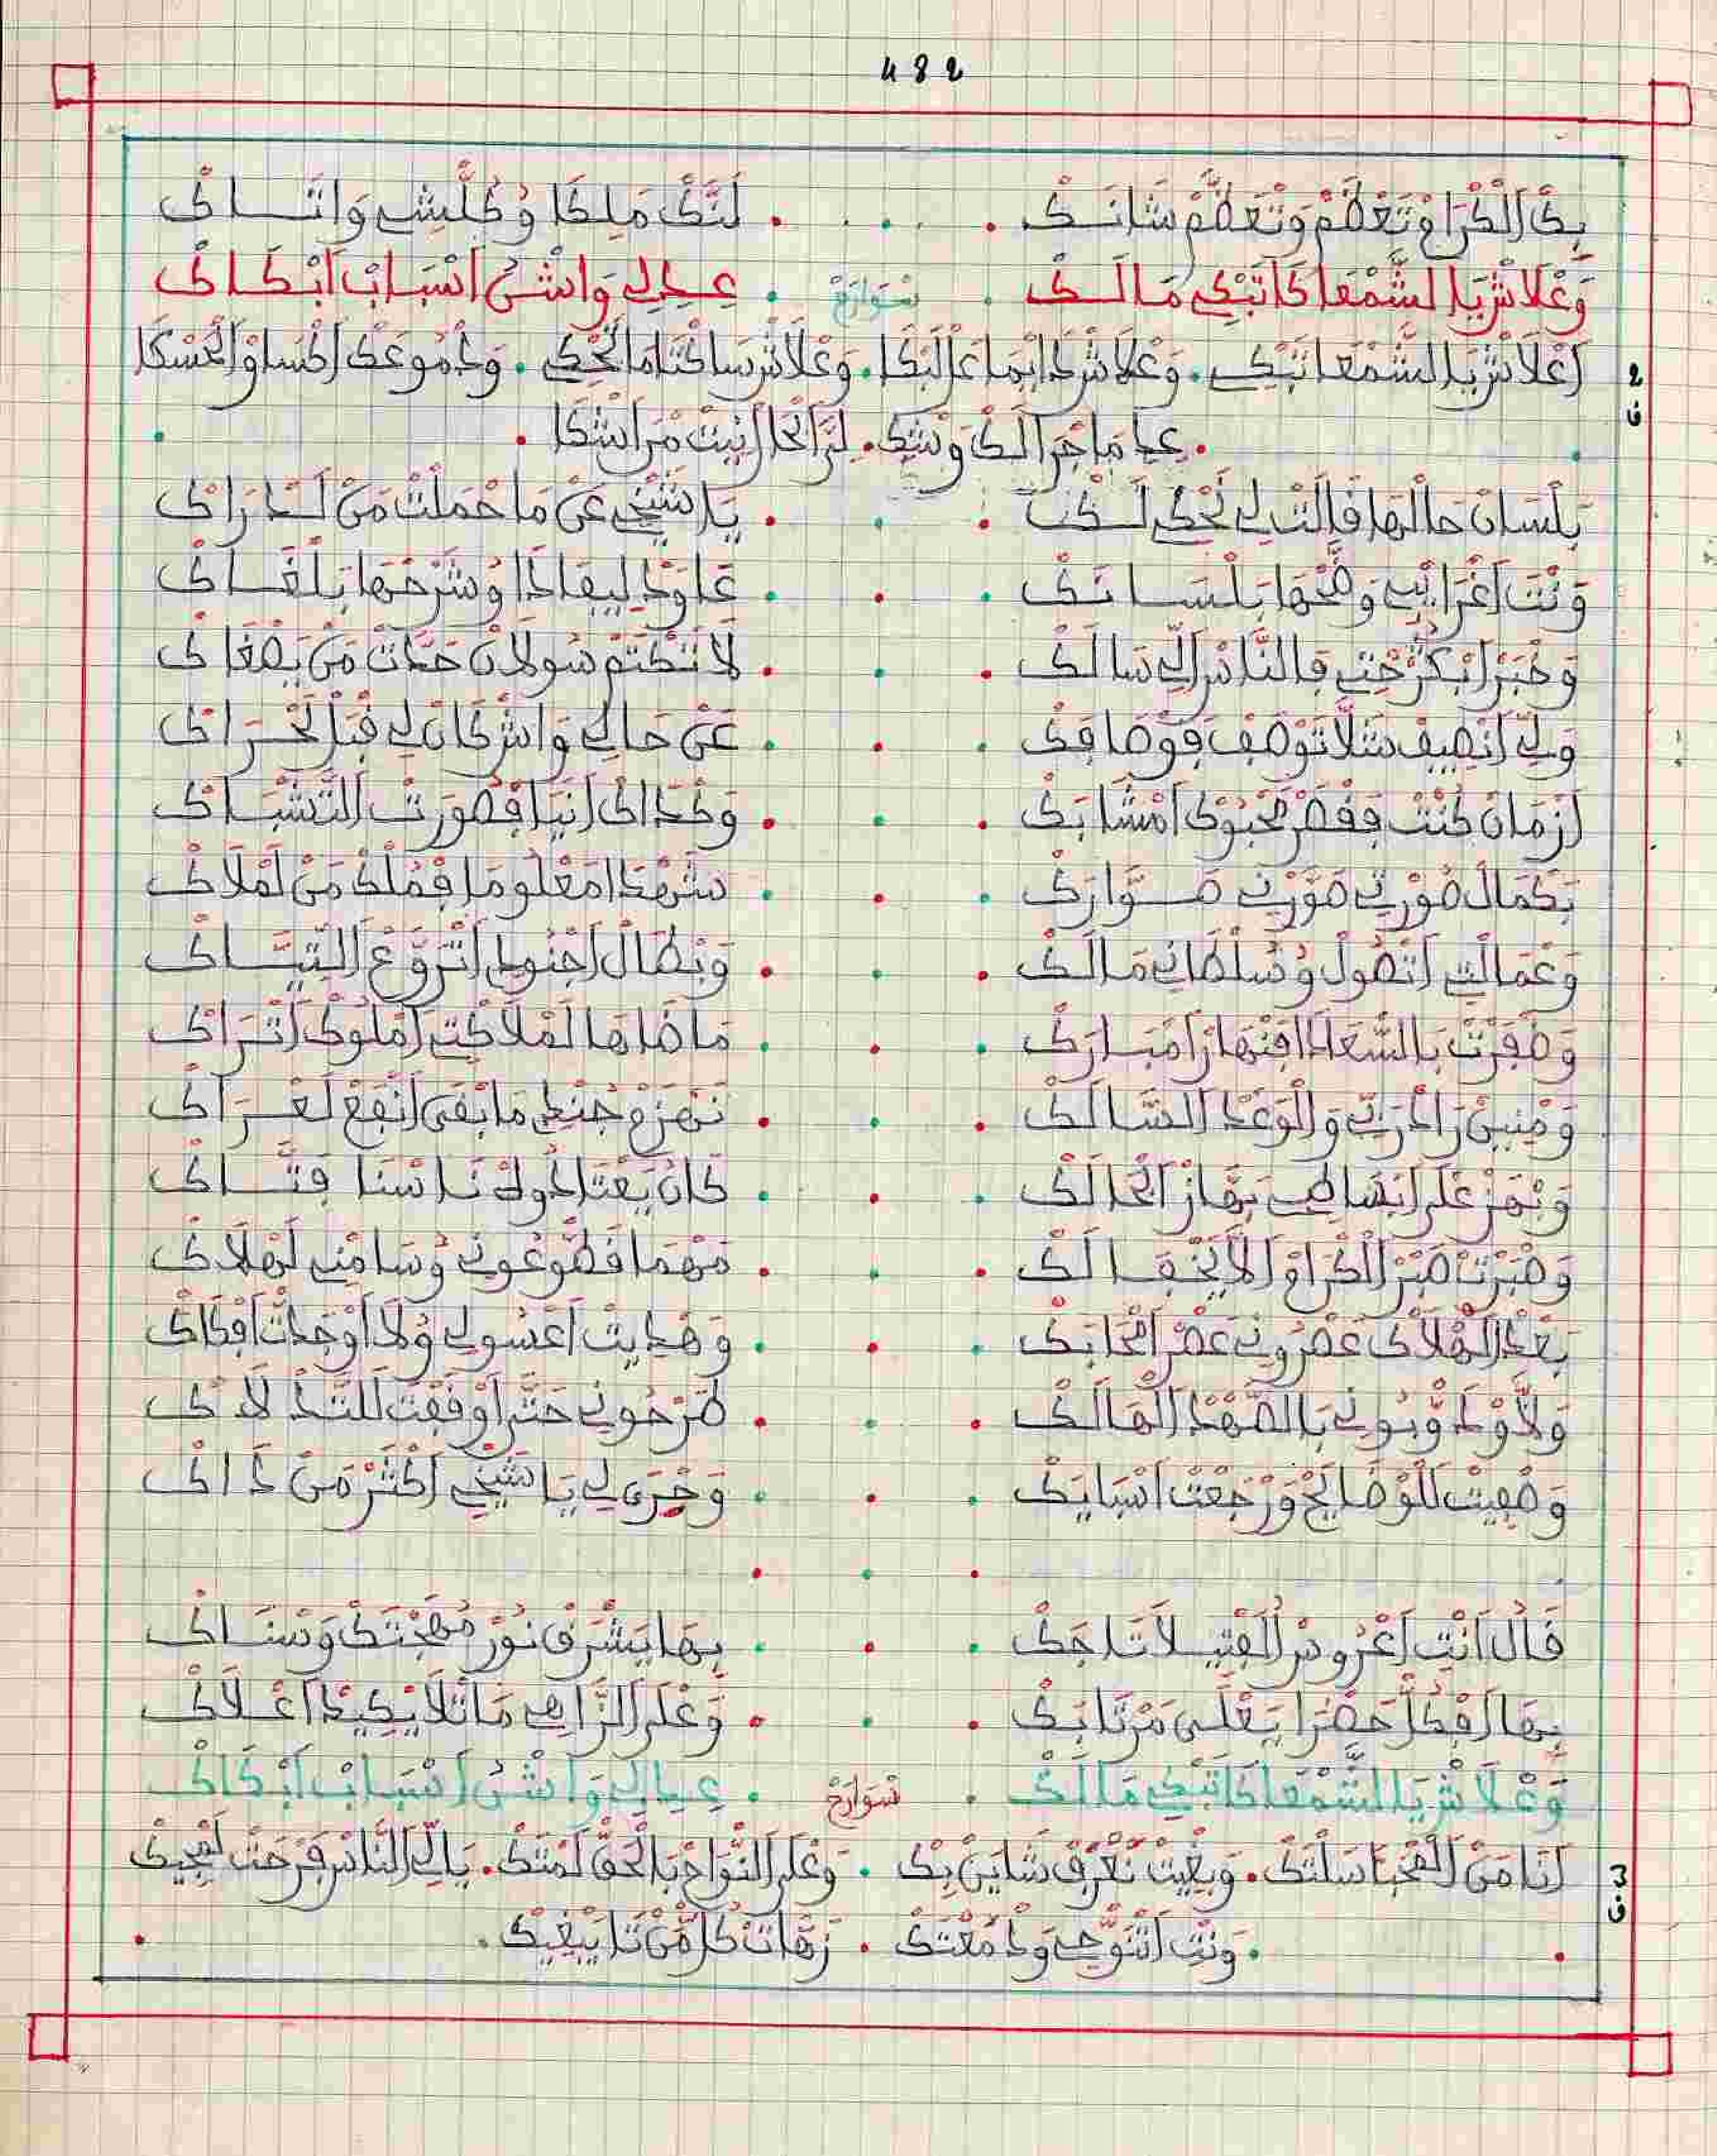 482
بك الكرام تعظم وتعظم شانك . . . لنك ملكا وكلشي واتاك
وعلاش يا الشمعا كاتبكي مالك . سوارح . عيدلي واش اسباب ابكاك
2 ف اعلاش يا الشمعا تبكي . وعلاش دايما عل البكا . وعلاش ساكتا ما تحكي . ودموعك اكساو الحسكا
. عيد ما جرالك وشك . لن الحال نيت من اشكا .
بلسان حالها قالت لي نحكي لك . . . يا شيخي عن ما حملت من لدراك
ونت اغرايبي وضحها بلسانك . . . عاود ليفادا وشرحها بلغاك
وخبر ابكرحتي فالناس الي سالك . . . لا تكتم سولان حدات من يصغاك
ولي انصيف شلا توصف فوصافك . . . عن حالي واش كان لي قبل لحراك
ازمان كنت فقصر محبوك امشابك . . . وكداك انيا فصورت التشباك
بكمال صورتي صورني صوارك . . . شهدا معلوما فملك من لملاك
وعمالتي اتصول وسلطاني مالك . . . وبطال اجنودي اتروع التياك
وظفرت بالسعادا فنهار امبارك . . . ما ضاهاها لملاكتي املوك اتراك
ومنين راد ربي والوعد السالك . . . نهزم جندي ما بقى انفع لعراك
ونهز على ابساطي بهاز الحالك . . . كان يعتادوك ناسنا فتاك
وصبرت صبر الكرام لا يخفالك . . . مهما قطوعوني وسامني لهلاك
بعد الهلاك عصروني عصر امحابك . . . وهديت اعسولي ولا اوجدت افكاك
ولاو دوبوني بالصهد الهالك . . . طرحوني حتى اوفقت للتدلاك
وصفيت للوصايح ورجعت اسبايك . . . وجرى لي يا شيخي اكثر من داك
. . .
قال انت اعروس الفتيلا تاجك . . . بها يشرق نور مهجتك وسناك
بها افكل حضرا يعلى مرتابك . . . وعلى الزاهي ماتلا يكيد اعلاك
وعلاش يا الشمعا كاتبكي مالك . سوارح . عيدلي واش اسباب ابكاك
3 ف انا من المحبا سلتك . وبغيت نعرف شاين بك . وعلى النواح بالحق لمتك . يا لي الناس فرحت لمجيك
. ونتي اتنوحي ودمعتك . زهات كل من تا يبغيك .